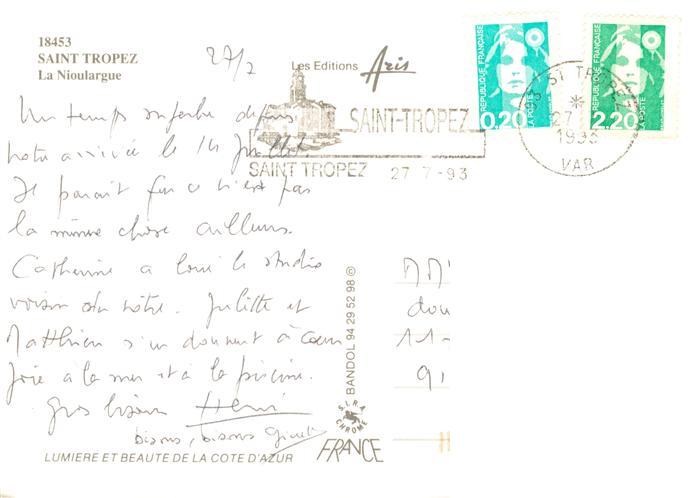 18453
SAINT TROPEZ
La Nioulargue
27/7
Les Editions Aris
REPUBLIQUE FRANÇAISE
0,20
LA POSTE
REPUBLIQUE FRANÇAISE
2,20
LA POSTE
SAINT-TROPEZ
SAINT TROPEZ 27 7 -93
83 ST TROPEZ
27
1993
VAR
Un temps superbe depuis
notre arrivée le 14 Juillet.
Il parait que ce n'est pas
la même chose ailleurs.
Catherine a loué le studio
voisin du notre. Juliette et
Matthieu s'en donnent à coeur
joie a la mer et à la piscine.
Gros bisous Henri
bisous, bisous
dou
11-
91
BANDOL 94 29 52 98 ©
S.I.R.A.
CHROME
FRANCE
LUMIERE ET BEAUTE DE LA COTE D'AZUR